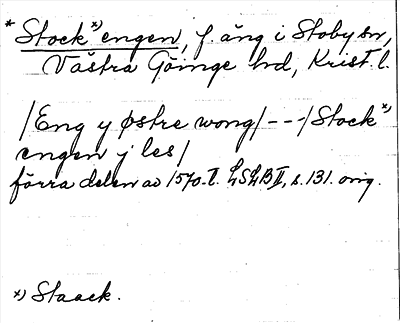 * Stock *) engen, f äng i Stoby sn,
Västra Göinge hd, Krist. l.
/Eng y østre wong/ - - - /Stock *)
engen j les/
förra delen av 1570-t. LSLB II, s. 131. orig.
*) Staack.